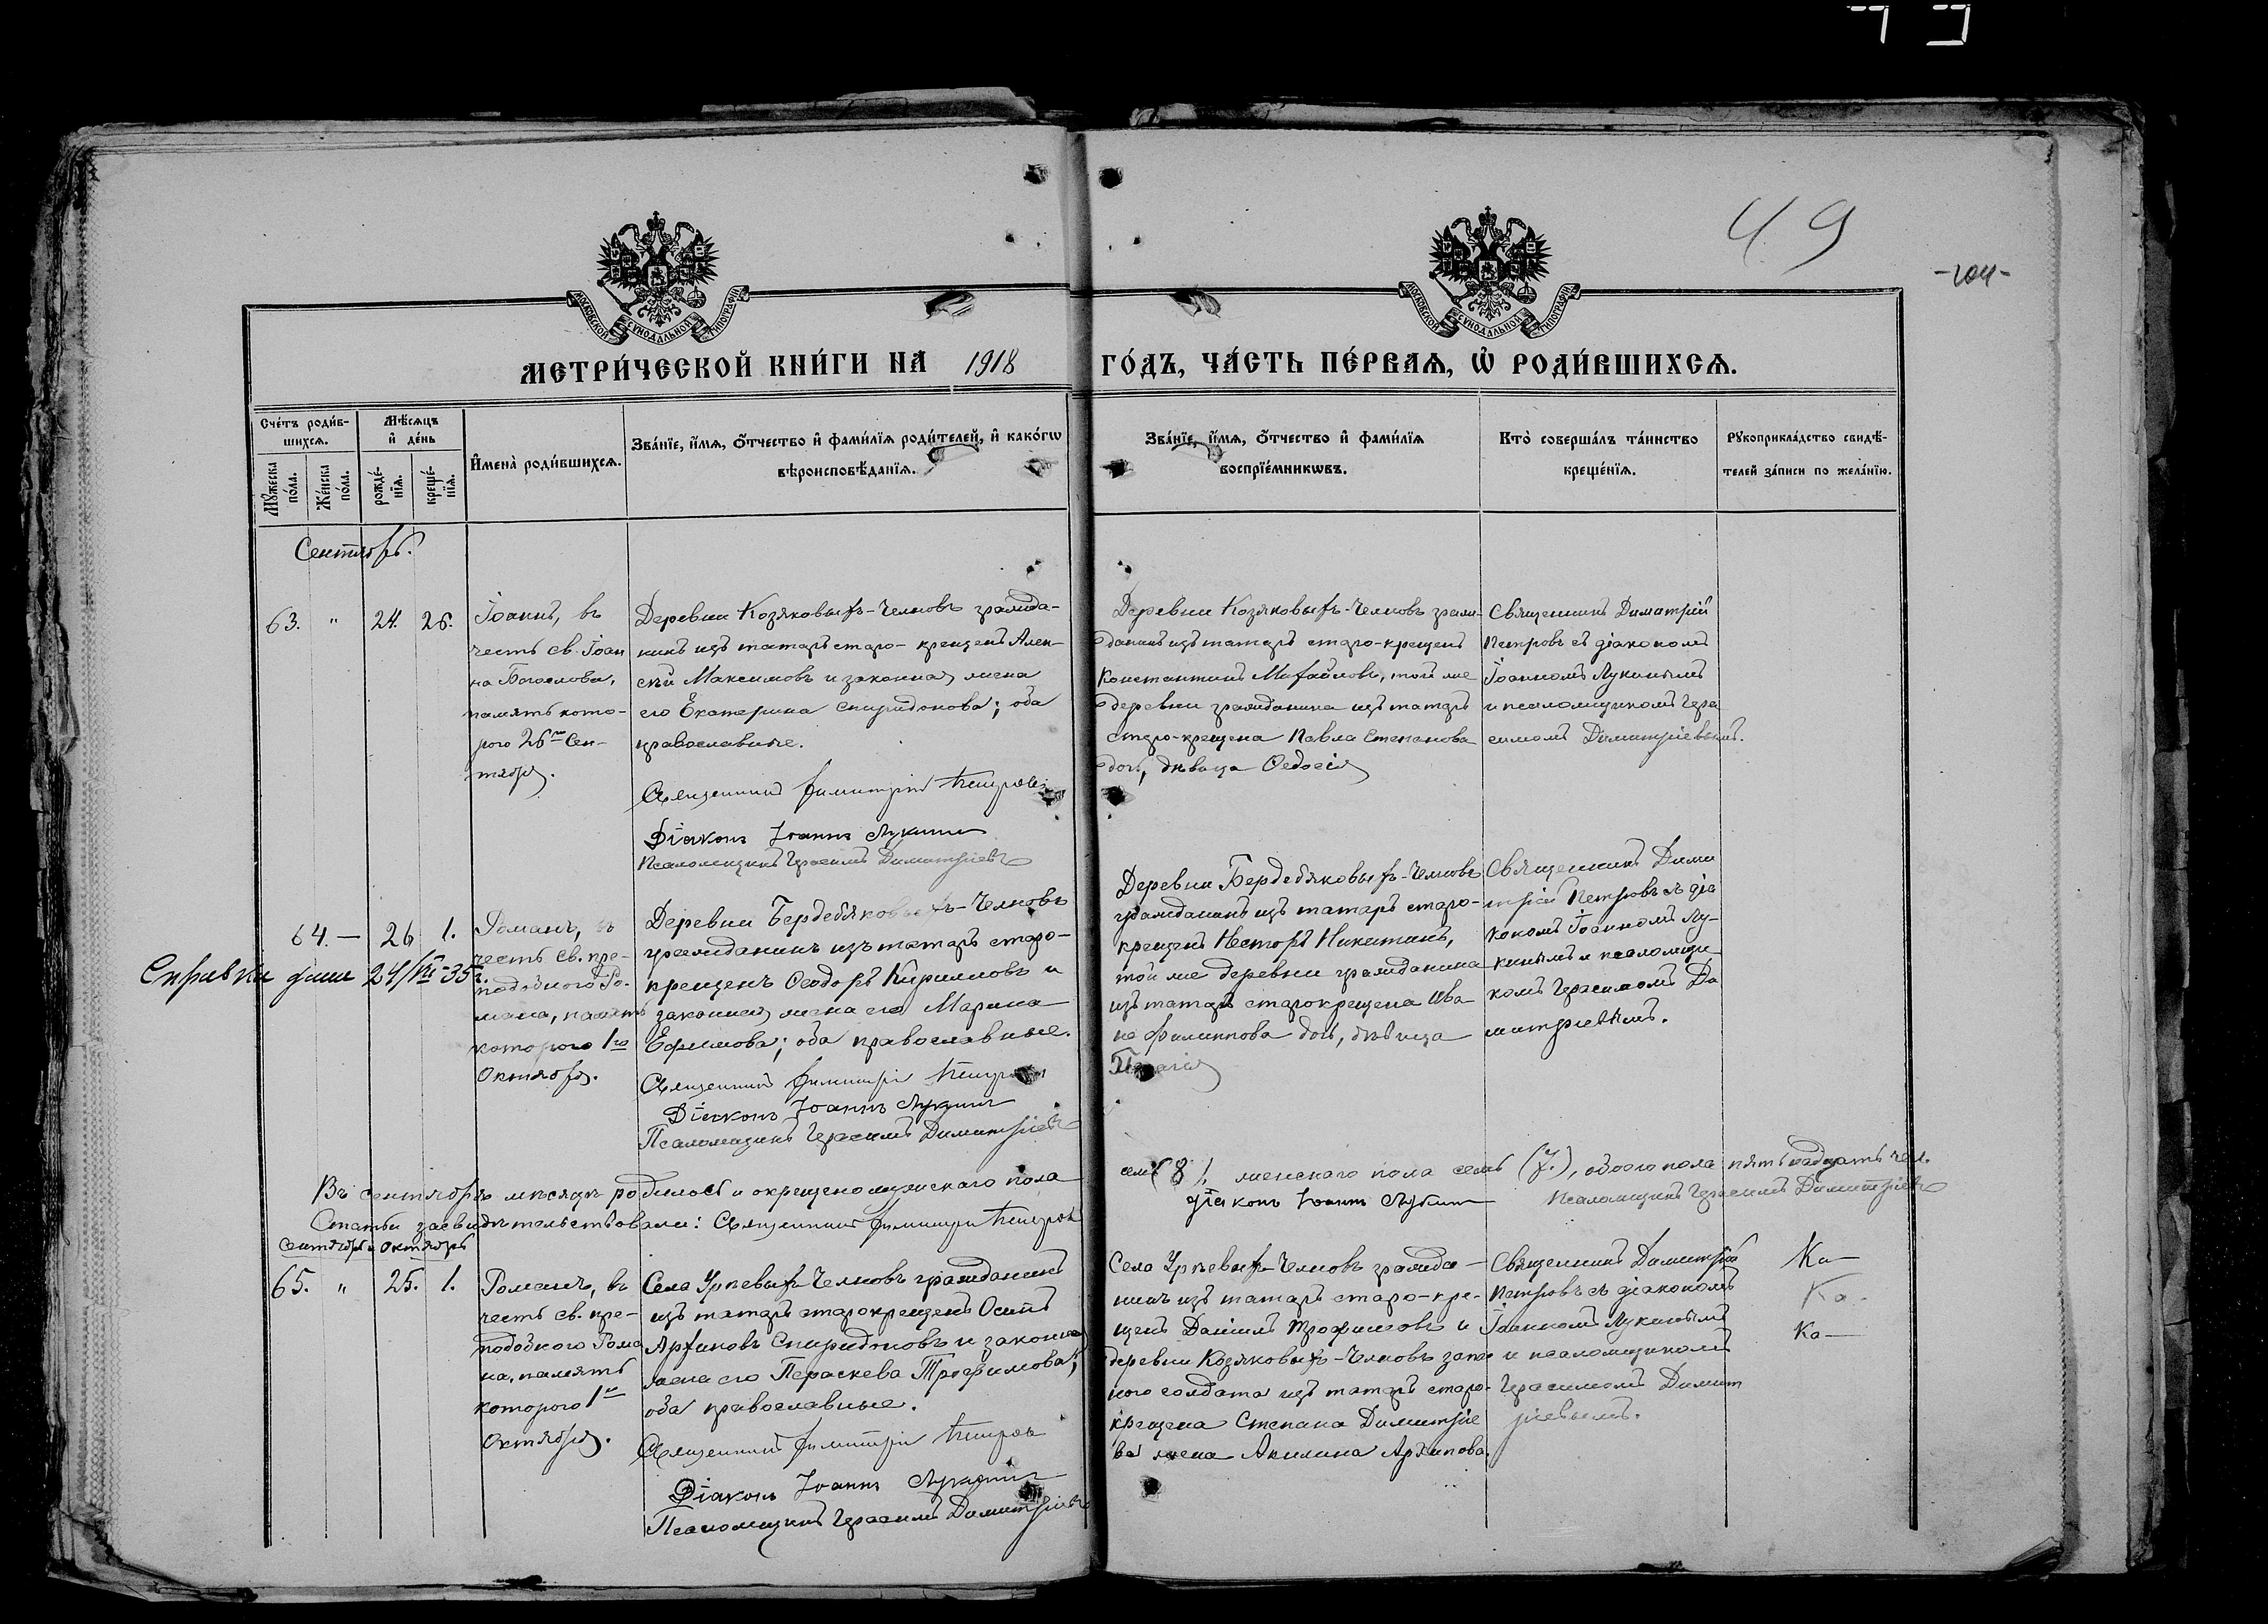 49
-104-
МОСКОВСКОЙ СУНОДАЛЬНОЙ ТИПОГРАФІИ
МОСКОВСКОЙ СУНОДАЛЬНОЙ ТИПОГРАФІИ
МЕТРИ́ЧЕСКОЙ КНИ́ГИ НА 1918 ГО́ДЪ, ЧА́СТЬ ПЕ́РВАѦ, Ѡ РОДИ́ВШИХСѦ.
Сче́тъ роди́в-
шихсѧ.
Мꙋ́жеска по́ла.
Же́нска по́ла.
Мѣ́сѧцъ
и҆ де́нь
рожде́-
нїѧ.
креще́-
нїѧ.
И҆мена̀ роди́вшихсѧ.
Зва́нїе, и҆́мѧ, ѻ҆́тчество и҆ фами́лїѧ роди́телей, и҆ како́гѡ
вѣроисповѣ́данїѧ.
Зва́нїе, и҆́мѧ, ѻ҆́тчество и҆ фами́лїѧ
воспрїе́мникѡвъ.
Кто̀ соверша́лъ та́инство
креще́нїѧ.
Рꙋкоприкла́дство свидѣ́-
телей за́писи по жела́нїю.
Сентябрь.
63. " 24. 26.
Іоаннъ, въ
честь св. Іоан
на Богослова,
память кото-
рого 26го Сен-
тября.
Деревни Козяковыхъ-Челновъ гражда-
нинъ изъ татаръ старо-крещенъ Алек-
сѣй Максимовъ и законная жена
его Екатерина Спиридонова; оба
православные.
Священникъ Димитрій Петровъ
Діаконъ Іоаннъ Лукинъ
Псаломщикъ Герасимъ Димитріевъ
Деревни Козяковыхъ-Челновъ граж-
данинъ изъ татаръ старо-крещенъ
Константинъ Михайловъ, той же
деревни гражданина изъ татаръ
старо-крещена Павла Степанова
дочь, дѣвица Ѳедосія
Священникъ Димитрій
Петровъ съ діакономъ
Іоанномъ Лукинымъ
и псаломщикомъ Гера
симомъ Димитріевымъ.
64. — 26 1.
Справки даны 24/VII-35г.
Романъ, въ
честь св. пре-
подобного Ро-
мана, память
которого 1го
Октября.
Деревни Бердебяковыхъ-Челновъ
гражданинъ изъ татаръ старо-
крещенъ Ѳеодоръ Кириловъ и
законная жена его Марина
Ефимова; оба православные.
Священникъ Димитрій Петровъ
Діаконъ Іоаннъ Лукинъ
Псаломщикъ Герасимъ Димитріевъ
Деревни Бердебяковыхъ-Челновъ
гражданинъ изъ татаръ старо-
крещенъ Несторъ Никитинъ,
той же деревни гражданина
изъ татаръ старокрещена Ива
на Филиппова дочь, дѣвица
Священникъ Дими
трій Петровъ съ діа
кономъ Іоанномъ Лу-
кинымъ и псаломщи-
комъ Герасимомъ Ди
митріевымъ.
Въ сентябрѣ мѣсяцѣ родилось и окрещено мужскаго пола
семь (8), женскаго пола семь (7.), обоего пола пятьнадцать чел.
Статьи засвидѣтельствовали: Священникъ Димитрій Петровъ
Діаконъ Іоаннъ Лукинъ Псаломщикъ Герасимъ Димитріевъ
Сентябрь Октябрь
65. " 25. 1.
Романъ, въ
честь св. пре-
подобного Рома
на, память
которого 1го
Октября.
Села Урѣевыхъ-Челновъ гражданинъ
изъ татаръ старокрещенъ Осипъ
Архиповъ Спиридоновъ и законная
жена его Параскева Трофимова;
оба православные.
Священникъ Димитрій Петровъ
Діаконъ Іоаннъ Лукинъ
Псаломщикъ Герасимъ Димитріевъ
Села Урѣевыхъ-Челновъ гражда-
нинъ изъ татаръ старо-кре-
щенъ Даніилъ Трофимовъ и
деревни Козяковыхъ-Челновъ запас
ного солдата изъ татаръ старо-
крещена Степана Димитріе
ва жена Акилина Архипова.
Священникъ Димитрій
Петровъ съ діакономъ
Іоанномъ Лукинымъ
и псаломщикомъ
Герасимомъ Димит
ріевымъ.
Ка—
Ка-
Ка—